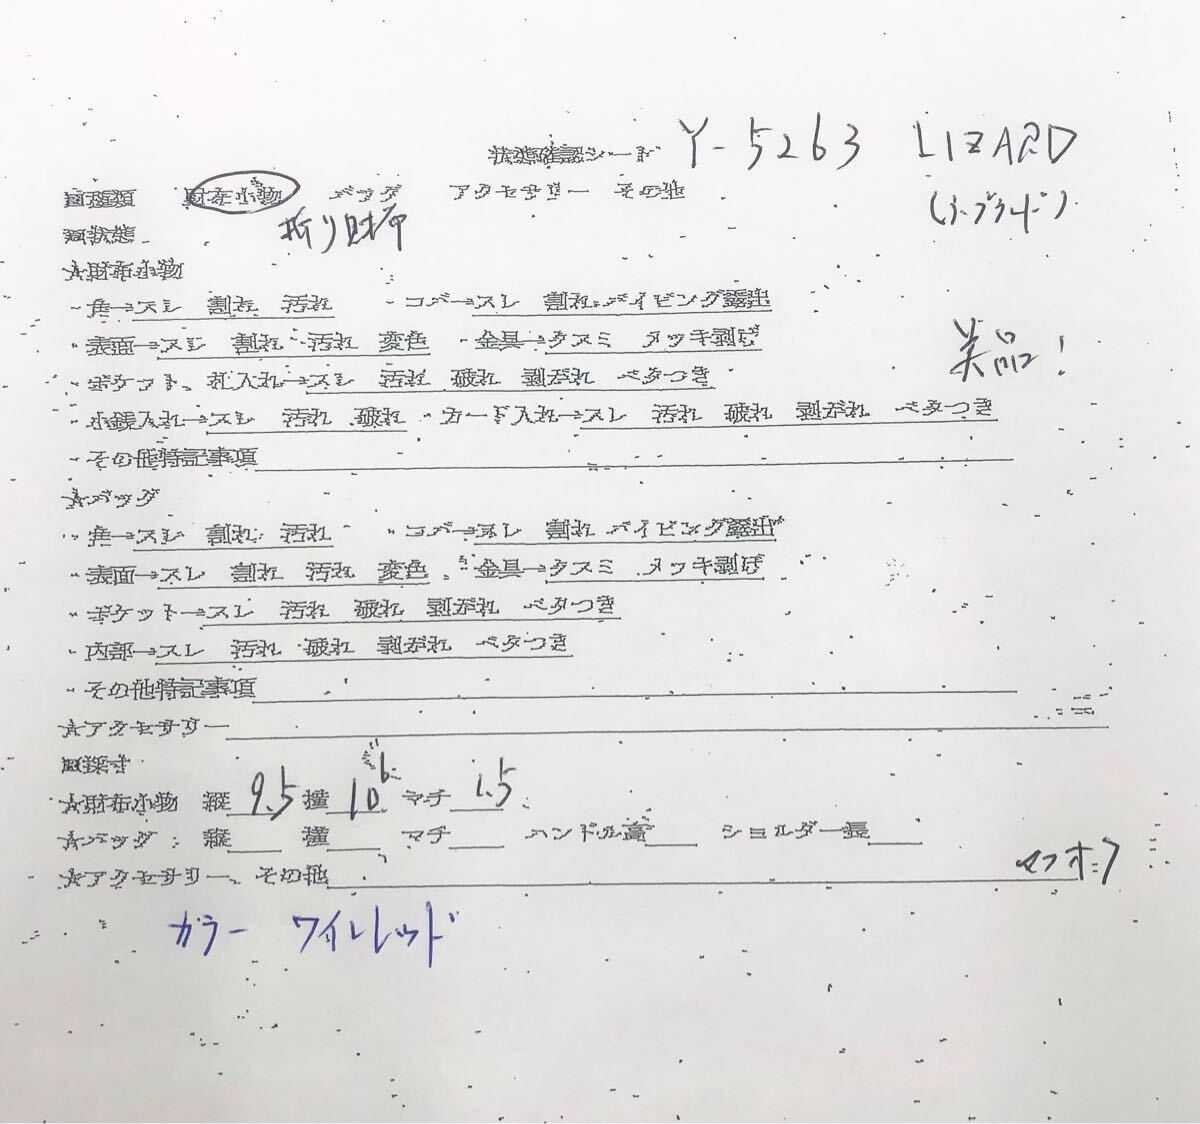 状態確認シート Y-5263 LIZARD
■種類 財布小物 バッグ アクセサリー その他
(ノーブランド)
■状態 折り財布
★財布小物
・角→スレ 割れ 汚れ ・コバ→スレ 割れ パイピング露出
・表面→スレ 割れ 汚れ 変色 ・金具→クスミ メッキ剥げ
美品!
・ポケット、札入れ→スレ 汚れ 破れ 剥がれ ベタつき
・小銭入れ→スレ 汚れ 破れ ・カード入れ→スレ 汚れ 破れ 剥がれ ベタつき
・その他特記事項
★バッグ
・角→スレ 割れ 汚れ ・コバ→スレ 割れ パイピング露出
・表面→スレ 割れ 汚れ 変色 ・金具→クスミ メッキ剥げ
・ポケット→スレ 汚れ 破れ 剥がれ ベタつき
・内部→スレ 汚れ 破れ 剥がれ ベタつき
・その他特記事項
★アクセサリー
■採寸
★財布小物 縦 9.5 横 10 マチ 1.5
★バッグ: 縦 横 マチ ハンドル高 ショルダー長
★アクセサリー、その他
カラー ワインレッド